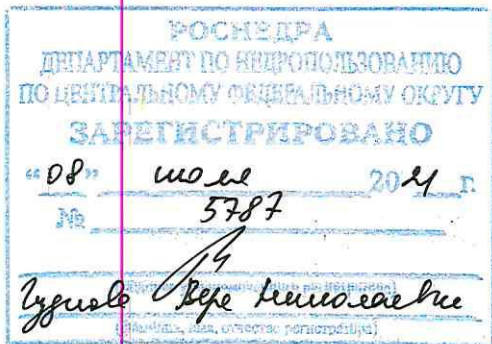 РОСНЕДРА
ДЕПАРТАМЕНТ ПО НЕДРОПОЛЬЗОВАНИЮ
ПО ЦЕНТРАЛЬНОМУ ФЕДЕРАЛЬНОМУ ОКРУГУ
ЗАРЕГИСТРИРОВАНО
“08” июля 2021 г.
№ 5787
Вера Николаевна
(фамилия, имя, отчество регистратора)